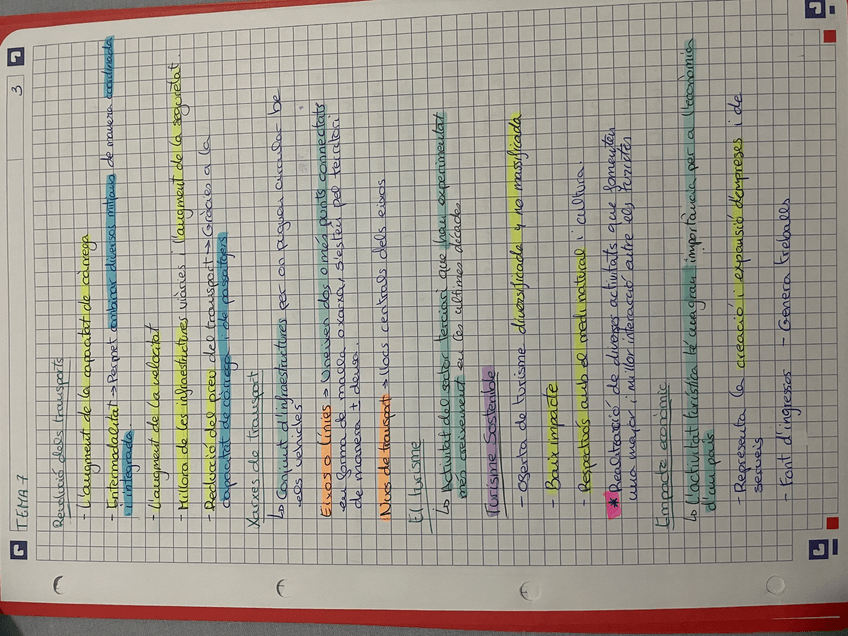 3
TEMA 7
Revolució dels transports
- L'augment de la capacitat de càrrega
- Intermodalitat → Permet combinar diversos mitjans de manera coordinada
i integrada
- L'augment de la velocitat
- Millora de les infraestructures viàries i l'augment de la seguretat.
- Reducció del preu del transport → Gràcies a la
capacitat de càrrega i de passatgers
Xarxes de transport
↳ Conjunt d'infraestructures per on poguen circular be
els vehicles
Eixos o línies → Uneixen dos o més punts connectats
en forma de malla o xarxa, s'estén pel territori
de manera ± densa.
Nus de transport → llocs centrals dels eixos
El turisme
↳ Activitat del sector terciari que han experimentat
més creixement en les ultimes décades.
Turisme Sostenible
- Oferta de turisme diversificada y no massificada
- Baix impacte
- Respectuós amb el medi natural i cultura.
* Realització de diverses activitats que fomenten
una major i millor interacció entre els turistes
Impacte econòmic
↳ L'activitat turística té una gran importància per a l'economia
d'un país
- Representa la creació i expansió d'empreses i de
serveis
- Font d'ingressos - Genera treballs